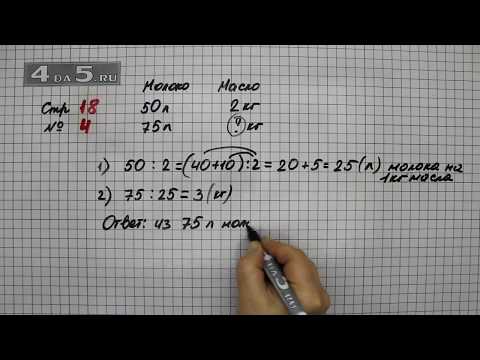 4DA5.RU
Молоко Масло
Стр 18 50л 2 кг
№ 4 75л ? кг
1) 50 : 2 = (40+10) : 2 = 20 + 5 = 25 (л) молока на
1 кг масла
2) 75 : 25 = 3 (кг)
Ответ: из 75 л мол
4DA5.RU